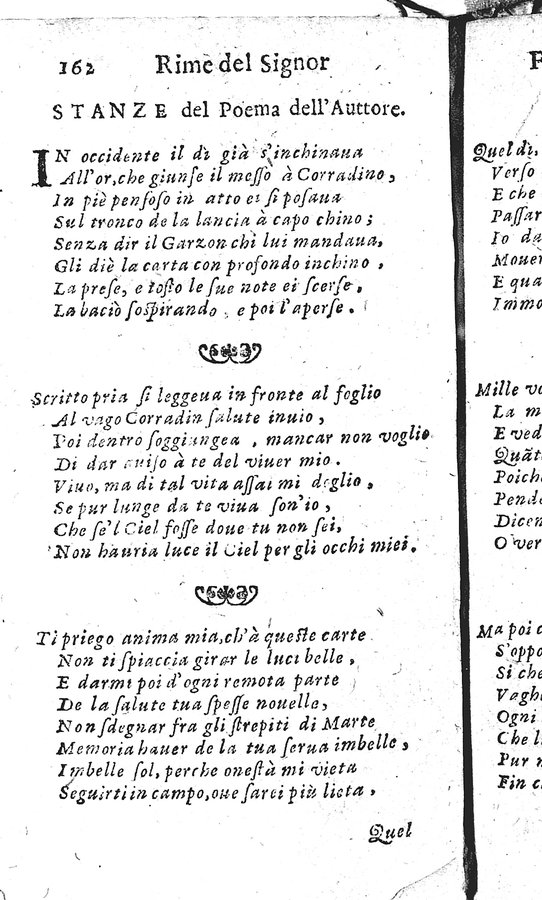 162 Rime del Signor
STANZE del Poema dell'Auttore.
IN occidente il dì già s'inchinaua
All'or, che giunse il messo à Corradino,
In piè pensoso in atto ei si posaua
Sul tronco de la lancia à capo chino;
Senza dir il Garzon chi lui mandaua,
Gli diè la carta con profondo inchino,
La prese, e tosto le sue note ei scerse,
La baciò sospirando, e poi l'aperse.
Scritto pria si leggeua in fronte al foglio
Al vago Corradin salute inuio,
Poi dentro soggiungea, mancar non voglio
Di dar auiso à te del viuer mio.
Viuo, ma di tal vita assai mi doglio,
Se pur lunge da te viua son'io,
Che se'l Ciel fosse doue tu non sei,
Non hauria luce il Ciel per gli occhi miei.
Ti priego anima mia, ch'à queste carte
Non ti spiaccia girar le luci belle,
E darmi poi d'ogni remota parte
De la salute tua spesse nouelle,
Non sdegnar fra gli strepiti di Marte
Memoria hauer de la tua serua imbelle,
Imbelle sol, perche onestà mi vieta
Seguirti in campo, oue sarei più lieta,
Quel
Quel dì,
Verso
E che
Passar
Io
E qua
Mille
La
E ved
Quãt
Poich
Dicen
O ver
Ma poi
S'oppo
Si che
Vagh
Ogni
Che
Pur
Fin